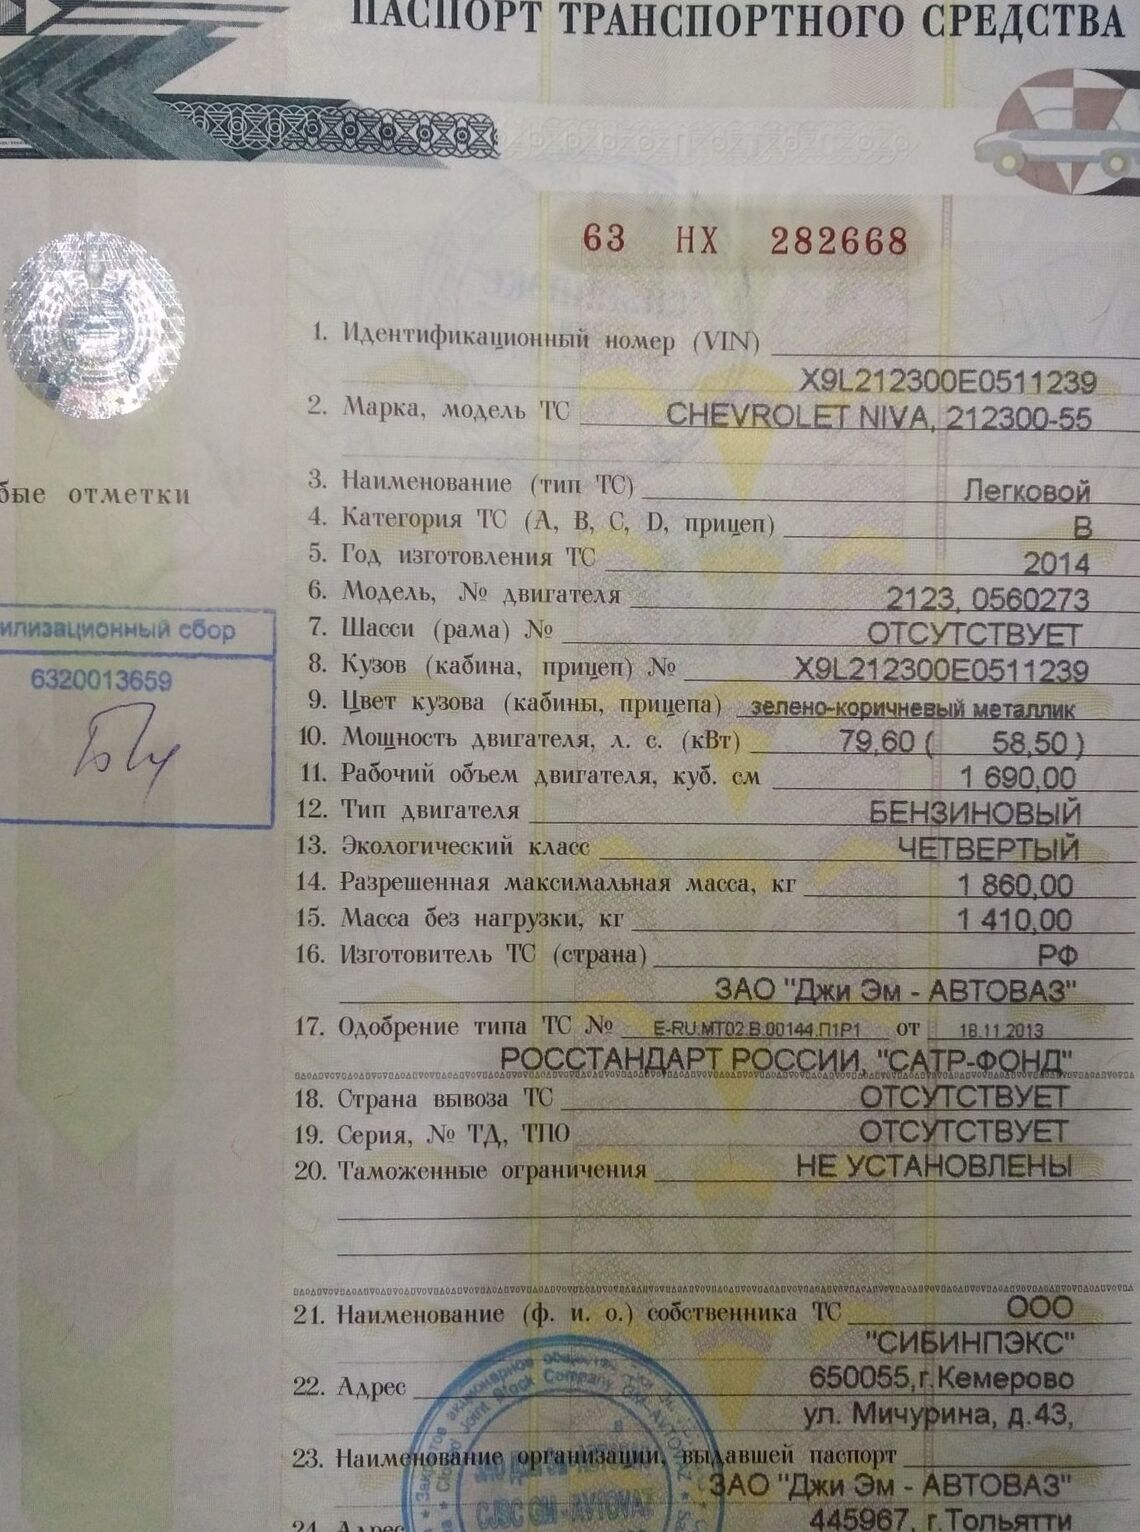 ПАСПОРТ ТРАНСПОРТНОГО СРЕДСТВА
63 НХ 282668
1. Идентификационный номер (VIN)
X9L212300E0511239
2. Марка, модель ТС CHEVROLET NIVA, 212300-55
3. Наименование (тип ТС) Легковой
4. Категория ТС (A, B, C, D, прицеп) B
5. Год изготовления ТС 2014
6. Модель, № двигателя 2123, 0560273
7. Шасси (рама) № ОТСУТСТВУЕТ
8. Кузов (кабина, прицеп) № X9L212300E0511239
9. Цвет кузова (кабины, прицепа) зелено-коричневый металлик
10. Мощность двигателя, л. с. (кВт) 79,60 ( 58,50 )
11. Рабочий объем двигателя, куб. см 1 690,00
12. Тип двигателя БЕНЗИНОВЫЙ
13. Экологический класс ЧЕТВЕРТЫЙ
14. Разрешенная максимальная масса, кг 1 860,00
15. Масса без нагрузки, кг 1 410,00
16. Изготовитель ТС (страна) РФ
ЗАО "Джи Эм - АВТОВАЗ"
17. Одобрение типа ТС № E-RU.MT02.B.00144.П1Р1 от 18.11.2013
РОССТАНДАРТ РОССИИ, "САТР-ФОНД"
18. Страна вывоза ТС ОТСУТСТВУЕТ
19. Серия, № ТД, ТПО ОТСУТСТВУЕТ
20. Таможенные ограничения НЕ УСТАНОВЛЕНЫ
21. Наименование (ф. и. о.) собственника ТС ООО
"СИБИНПЭКС"
22. Адрес 650055,г.Кемерово
ул. Мичурина, д.43,
23. Наименование организации, выдавшей паспорт
ЗАО "Джи Эм - АВТОВАЗ"
24. Адрес 445967, г.Тольятти
бые отметки
илизационный сбор
6320013659
Закрытое акционерное
Joint Stock Company GM-AVTOVAZ
CJSC GM - AVTOVAZ